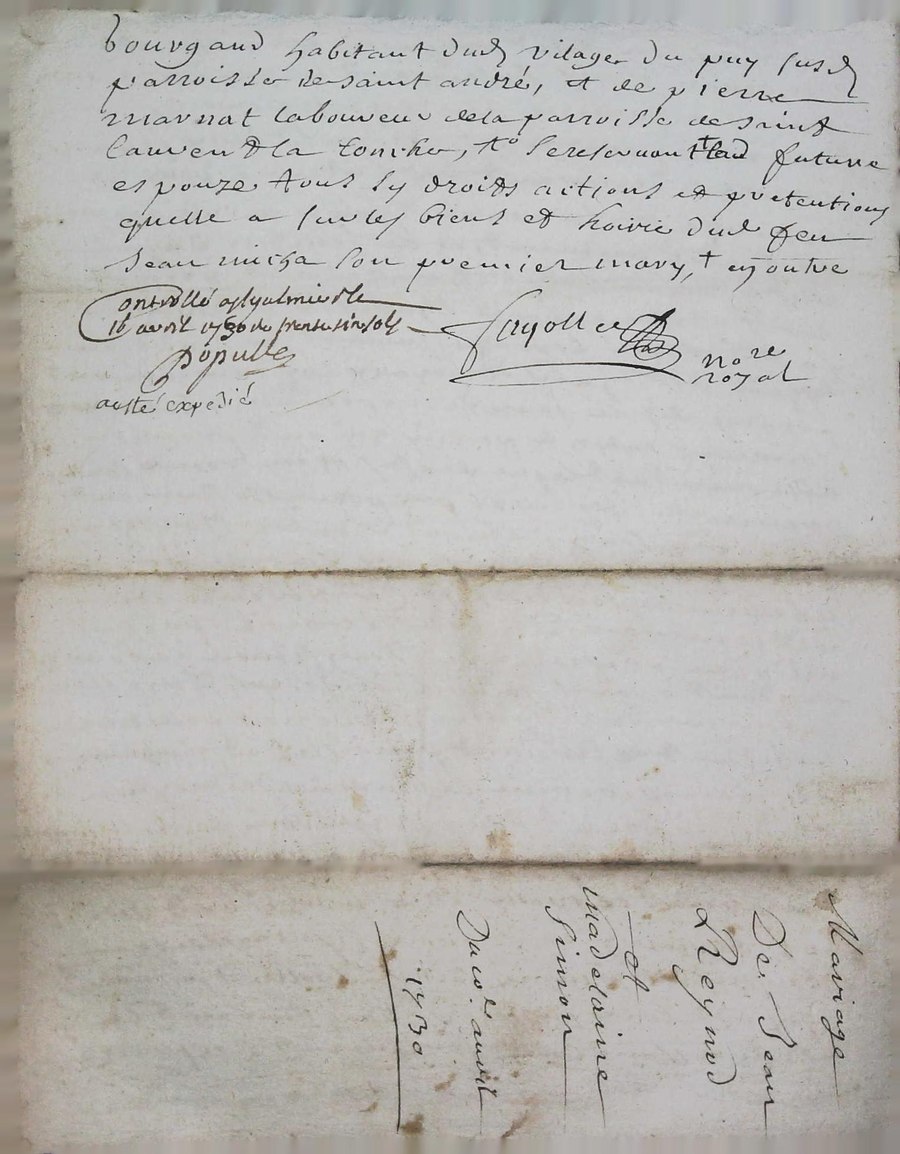 bourgand habitant dud vilage du puy susd
parroisse de saint andré, et de pierre
marnat laboureur de la parroisse de saint
laurent la conche, to se reservant lad future
espouze tous sy droits actions et pretentions
quelle a sur les biens et hoirie dud feu
Jean micha son premier mary, + en outre
Controllé a st galmier le
16 avril 1730
populle
acté expedié
fayolle
no.re
royal
Mariage
De Jean
Reynod
et
madelaine
Simon
Du 10e avril
1730